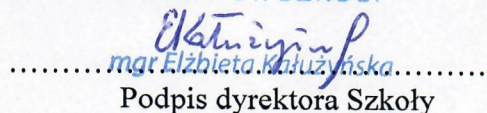 mgr Elżbieta Kałużyńska
Podpis dyrektora Szkoły